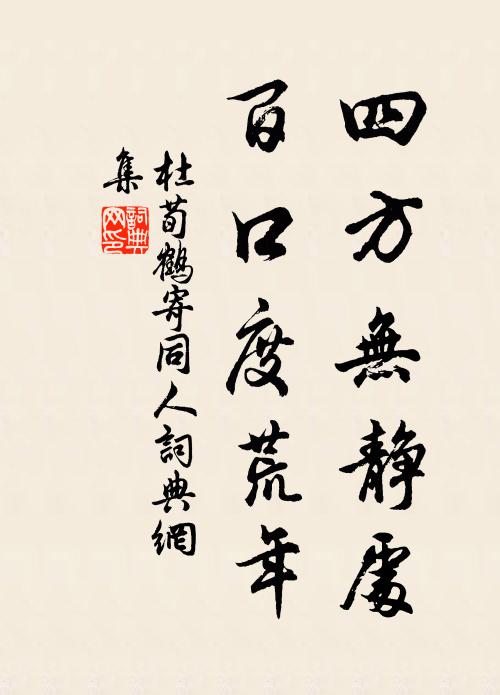 四方無静處
百口度荒年
杜荀鶴寄同人詞典網
集
詞典
网印